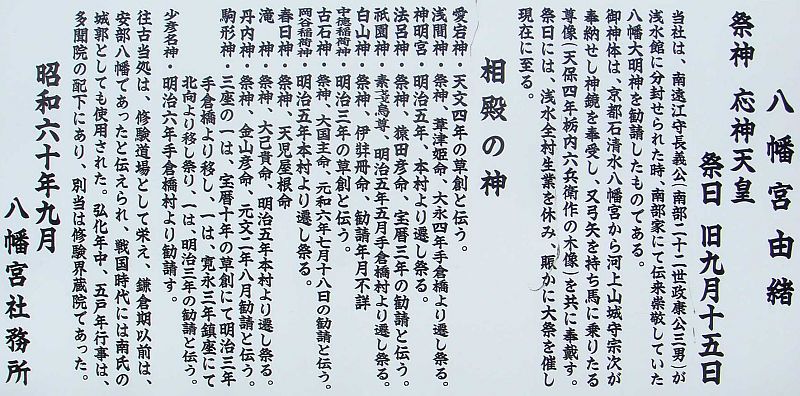 八幡宮由緒
祭神 応神天皇
祭日 旧九月十五日
当社は、南遠江守長義公(南部二十二世政康公三男)が
浅水館に分封せられた時、南部家にて伝来崇敬していた
八幡大明神を勧請したものである。
御神体は、京都石清水八幡宮から河上山城守宗次が
奉納せし神鏡を奉受し、又弓矢を持ち馬に乗りたる
尊像(天保四年栃内六兵衛作の木像)を共に奉戴す。
祭日には、浅水全村生業を休み、賑かに大祭を催し
現在に至る。
相殿の神
愛宕神・天文四年の草創と伝う。
浅間神・祭神、葦津姫命、大永四年手倉橋より遷し祭る。
神明宮・明治五年、本村より遷し祭る。
法呂神・祭神、猿田彦命、宝暦三年の勧請と伝う。
祇園神・素戔烏尊、明治五年五月手倉橋村より遷し祭る。
白山神・祭神、伊弉冊命、勧請年月不詳
中徳稲荷神・明治三年の草創と伝う。
岡谷稲荷神・祭神、大国主命、元和六年七月十八日の勧請と伝う。
古石神・明治五年本村より遷し祭る。
春日神・祭神、天児屋根命
滝 神・祭神、大己貴命、明治五年本村より遷し祭る。
丹内神・祭神、金山彦命、元文二年八月勧請と伝う。
駒形神・三座の一は、宝暦十年の草創にて明治三年
手倉橋より移し、一は、寛永三年鎮座にて
北向より移し祭り、一は、明治三年の勧請と伝う。
少彦名神・明治六年手倉橋村より勧請す。
往古当処は、修験道場として栄え、鎌倉期以前は、
安部八幡であったと伝えられ、戦国時代には南氏の
城郭としても使用された。弘化年中、五戸年行事は、
多聞院の配下にあり、別当は修験界蔵院であった。
昭和六十年九月
八幡宮社務所